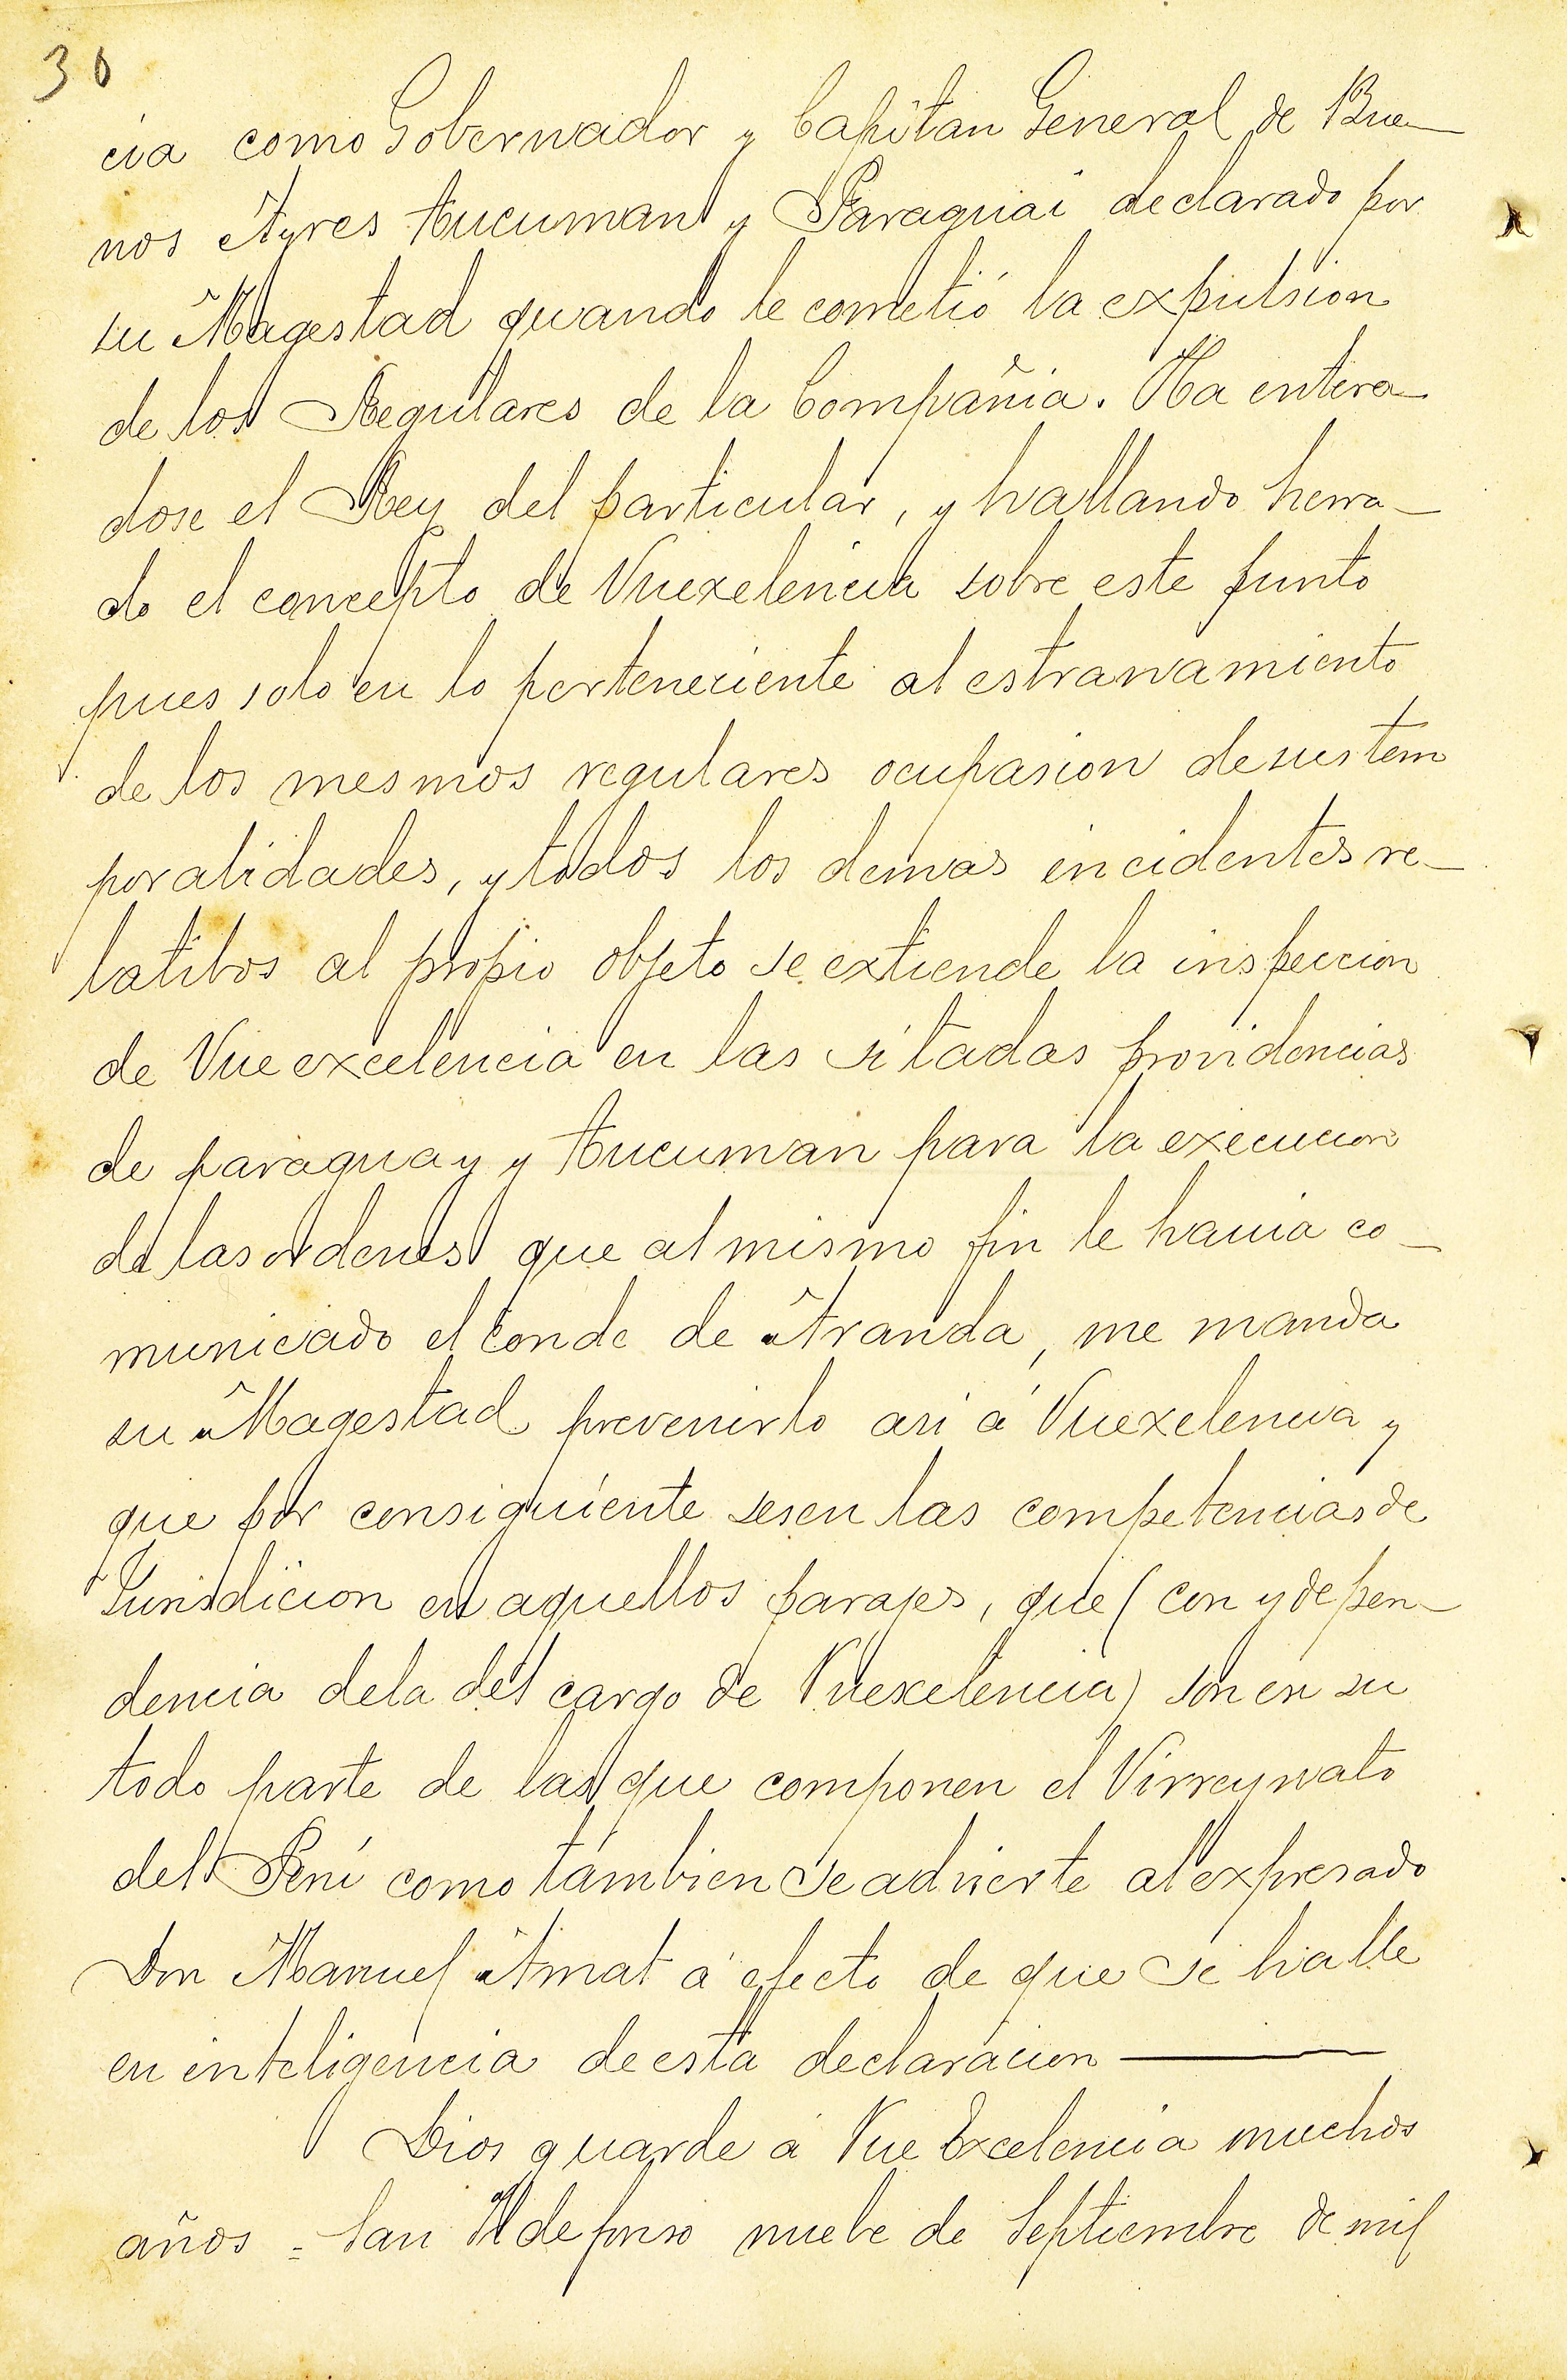 30
cia como Gobernador y Capitan General de Bue-
nos Ayres tucuman y Paraguai declarado por
su Magestad quando le cometió la expulsion
de los Regulares de la Compañia. Ha entera-
dose el Rey del particular, y hallando herra-
do el concepto de Vuexelencia sobre este punto
pues solo en lo perteneciente al estranamiento
de los mesmos regulares ocupasion de sus tem
poralidades, y todos los demas incidentes re-
latibos al propio objeto se extiende la inspeccion
de Vue excelencia en las sitadas providencias
de paraguay y tucuman para la execucion
de las ordenes que al mismo fin le havia co-
municado el Conde de Aranda, me manda
su Magestad prevenirlo asi á Vuexelencia y
que por consiguiente sesen las competencias de
Jurisdicion en aquellos parajes, que (con ydepen-
dencia dela del cargo de Vuexelencia) son en su
todo parte de las que componen el Virreynato
del Perú como tambien se advierte al expresado
Don Manuel Amat á efecto de que se halle
en inteligencia de esta declaracion
Dios guarde á Vue Excelencia muchos
años = San Ildefonso nuebe de Septiembre de mil